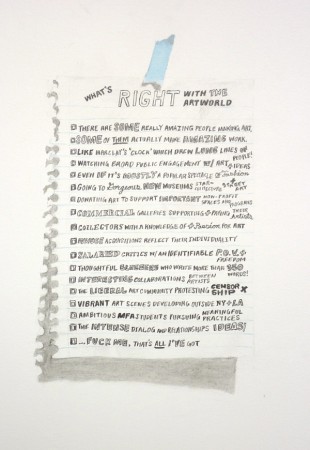 WHAT'S RIGHT WITH THE ARTWORLD
THERE ARE SOME REALLY AMAZING PEOPLE MAKING ART.
SOME OF THEM ACTUALLY MAKE AMAZING WORK.
LIKE MARCLAY'S "CLOCK" WHICH DREW LONG LINES OF PEOPLE!
WATCHING BROAD PUBLIC ENGAGEMENT W/ ART + IDEAS
EVEN IF IT'S MOSTLY A POPULAR SPECTACLE OF Fashion
GOING TO Gorgeous NEW MUSEUMS STAR-ARCHITECTURE + ART
DONATING ART TO SUPPORT NON-PROFIT SPACES AND PROGRAMS
COMMERCIAL GALLERIES SUPPORTING + PAYING THEIR Artists
COLLECTORS WITH A KNOWLEDGE OF + Passion FOR ART
WHOSE ACQUISITIONS REFLECT THEIR INDIVIDUALITY
SALARIED CRITICS W/ AN IDENTIFIABLE P.O.V. + FREEDOM
THOUGHTFUL BLOGGERS WHO WRITE MORE THAN 350 WORDS!
INTERESTING COLLABORATIONS BETWEEN ARTISTS
THE LIBERAL ART COMMUNITY PROTESTING CENSORSHIP
VIBRANT ART SCENES DEVELOPING OUTSIDE NY + LA
AMBITIOUS MFA STUDENTS PURSUING MEANINGFUL PRACTICES
THE INTENSE DIALOG AND RELATIONSHIPS IDEAS!
... FUCK ME, THAT'S ALL I'VE GOT